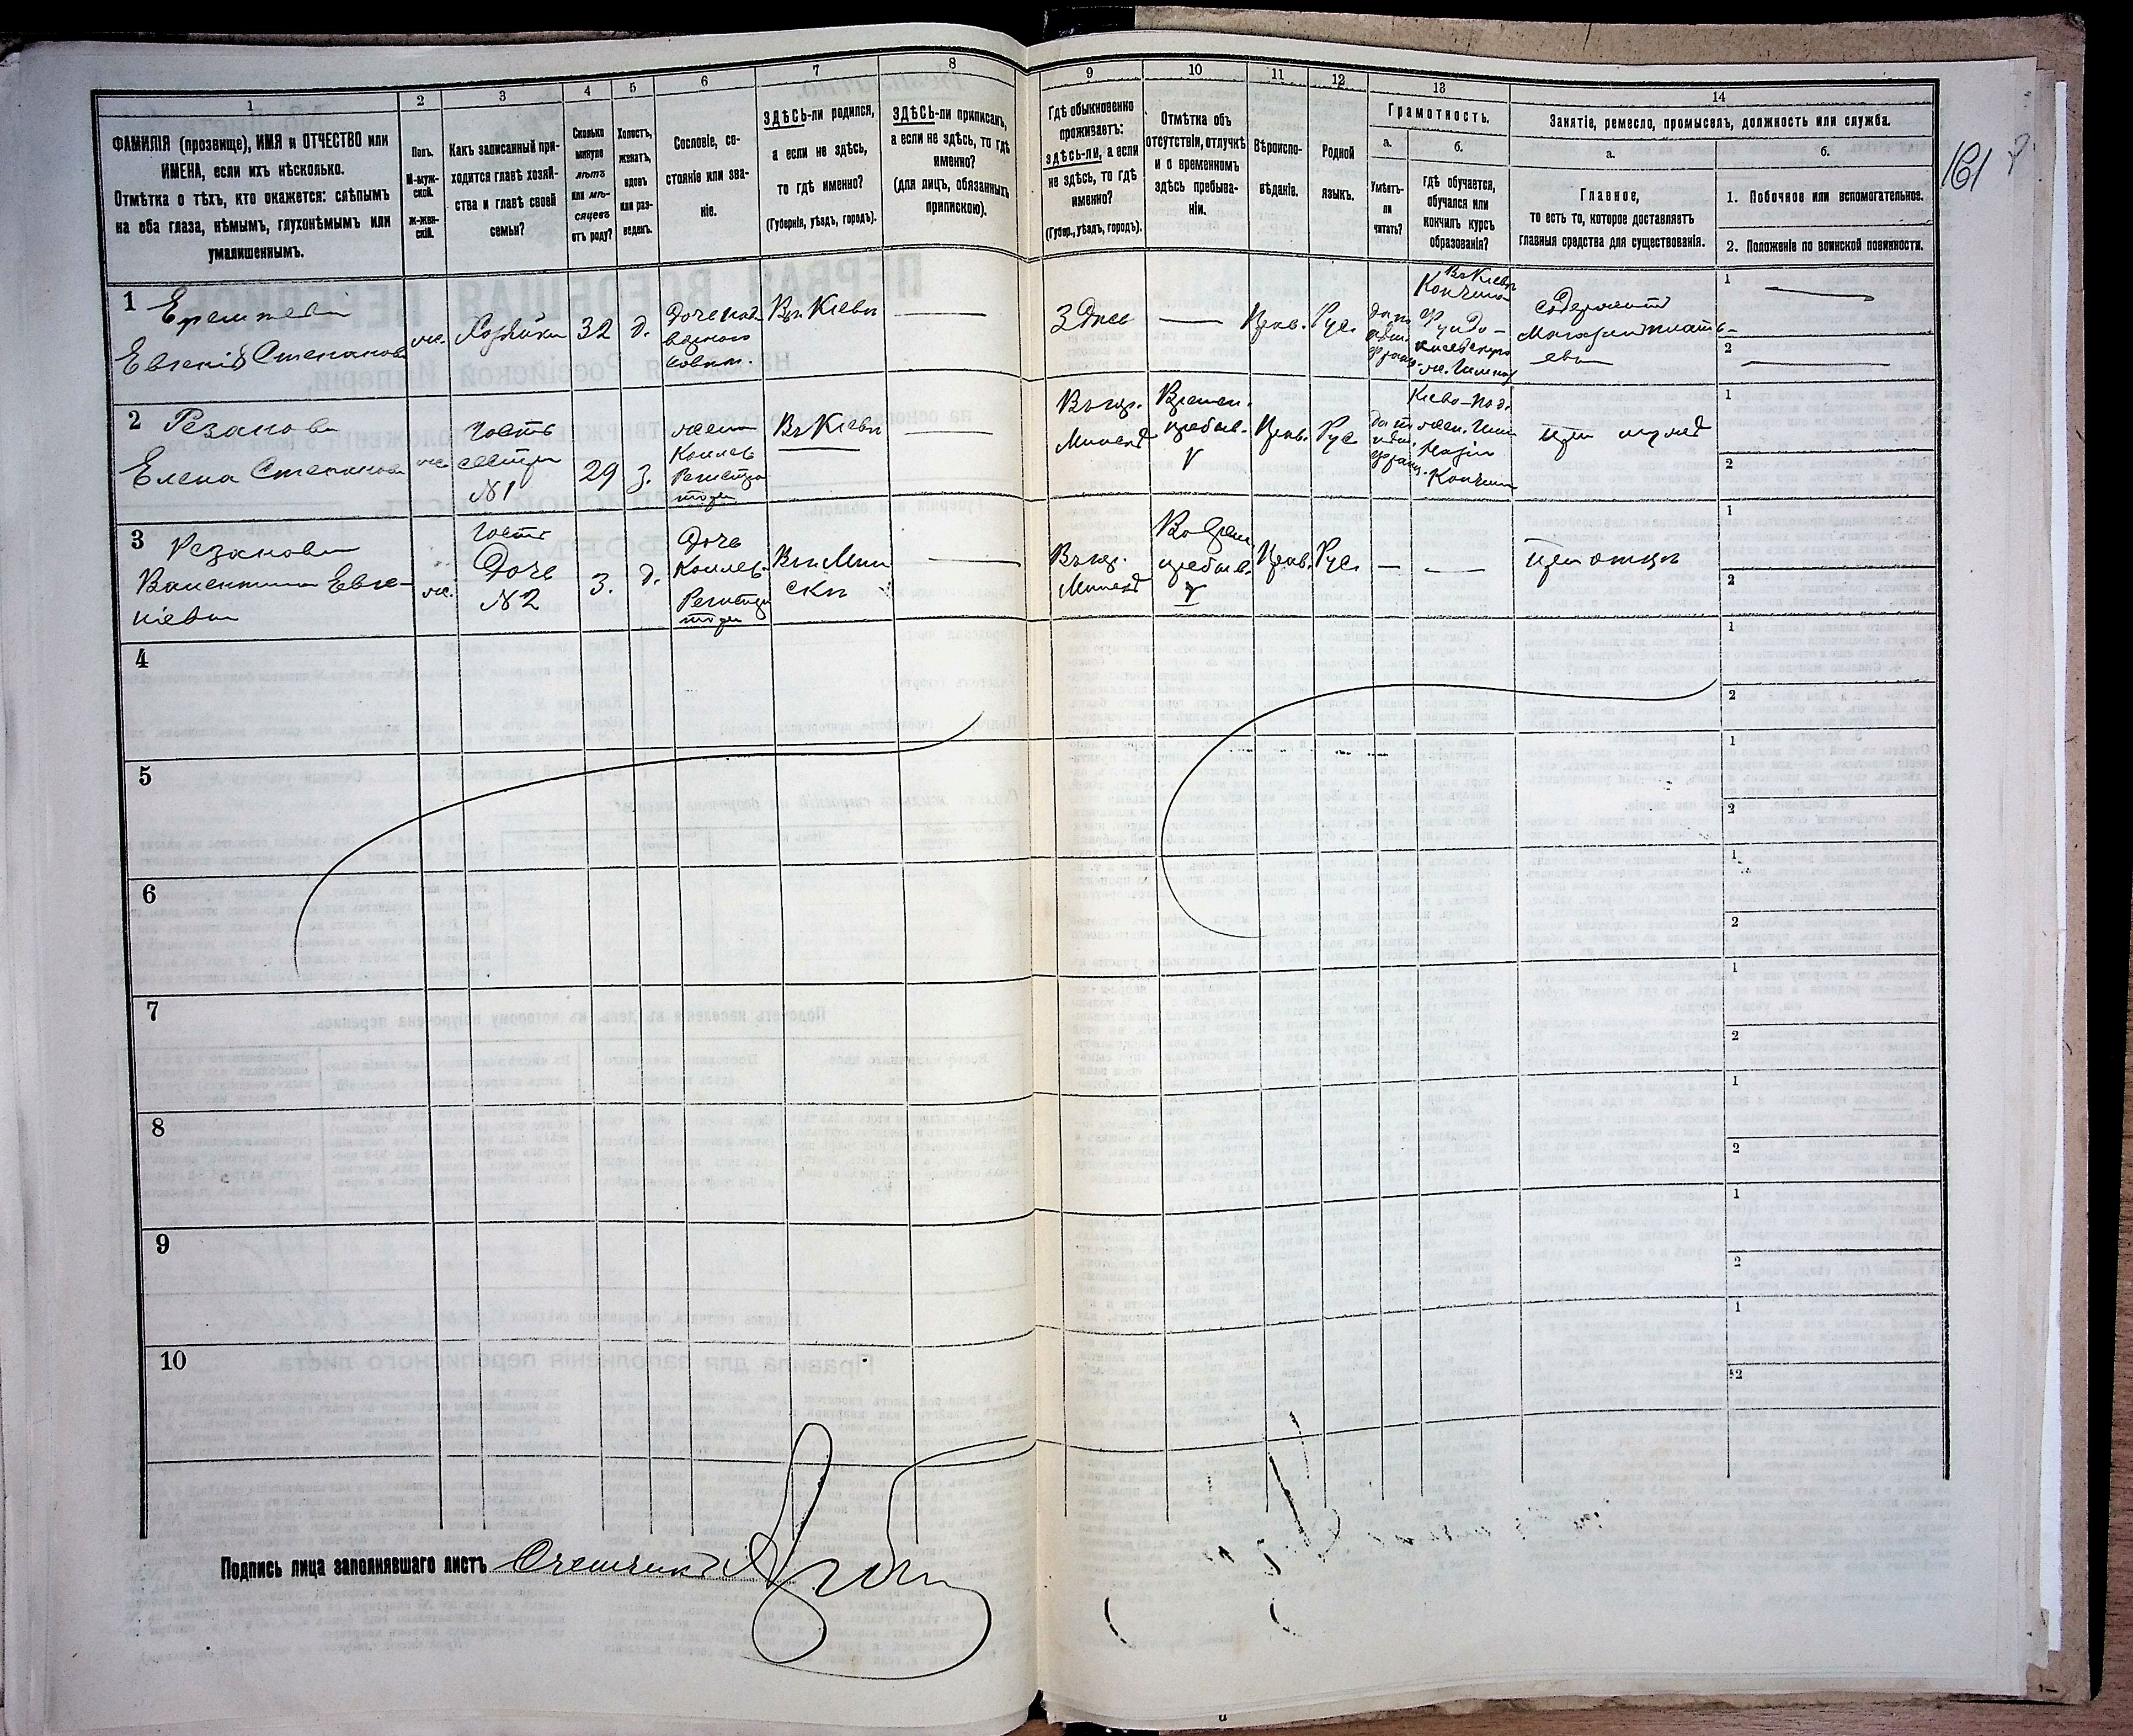 1
2
3
4
5
6
7
8
9
10
11
12
13
14
ФАМИЛІЯ (прозвище), ИМЯ и ОТЧЕСТВО или
ИМЕНА, если ихъ нѣсколько.
Отмѣтка о тѣхъ, кто окажется: слѣпымъ
на оба глаза, нѣмымъ, глухонѣмымъ или
умалишеннымъ.
Полъ.
М-муж-
ской.
ж-жен-
скій.
Какъ записанный при-
ходится главѣ хозяй-
ства и главѣ своей
семьи?
Сколько
минуло
лѣтъ
или мѣ-
сяцевъ
отъ роду?
Холостъ,
женатъ,
вдовъ
или раз-
веденъ.
Сословіе, со-
стояніе или зва-
ніе.
ЗДѢСЬ-ли родился,
а если не здѣсь,
то гдѣ именно?
(Губернія, уѣздъ, городъ).
ЗДѢСЬ-ли приписанъ,
а если не здѣсь, то гдѣ
именно?
(для лицъ, обязанныхъ
припискою).
Гдѣ обыкновенно
проживаетъ:
здѣсь-ли, а если
не здѣсь, то гдѣ
именно?
(Губер., уѣздъ, городъ).
Отмѣтка объ
отсутствіи, отлучкѣ
и о временномъ
здѣсь пребыва-
ніи.
Вѣроиспо-
вѣданіе.
Родной
языкъ.
Грамотность.
а.
Умѣетъ-
ли
читать?
б.
гдѣ обучается,
обучался или
кончилъ курсъ
образованія?
Занятіе, ремесло, промыселъ, должность или служба.
а.
Главное,
то есть то, которое доставляетъ
главныя средства для существованія.
б.
1. Побочное или вспомогательное.
2. Положеніе по воинской повинности.
161
1
Евгенія Степанова
ж.
Хозяйка
32
д.
Дочь над-
ворнаго
совѣт.
Въ Кіевѣ
Здѣсь
Прав.
Рус.
Въ Кіевѣ
Кончила
Фунду-
клеевскую
ж. Гимназ
1
2
2
Резанова
Елена Степанова
ж.
Гость
сестра
№ 1
29
з.
жена
Коллеж
Регистра
тора
Въ Кіевѣ
Въ гор.
Минскѣ
Времен.
пребыв.
Прав.
Рус
Кіево-Под.
жен. Гим
назія
Кончила
при мужѣ
1
2
3
Резанова
Валентина Евге-
ніевна
ж.
Гость
Дочь
№ 2
3.
д.
Дочь
Коллеж.
Регистра
тора
Въ Мин
скѣ
Въ гор.
Минскѣ
пребыв.
Прав.
Рус.
При отцѣ
1
2
4
1
2
5
1
2
6
1
2
7
1
2
8
1
2
9
1
2
10
1
2
Подпись лица заполнявшаго листъ Счетчикъ